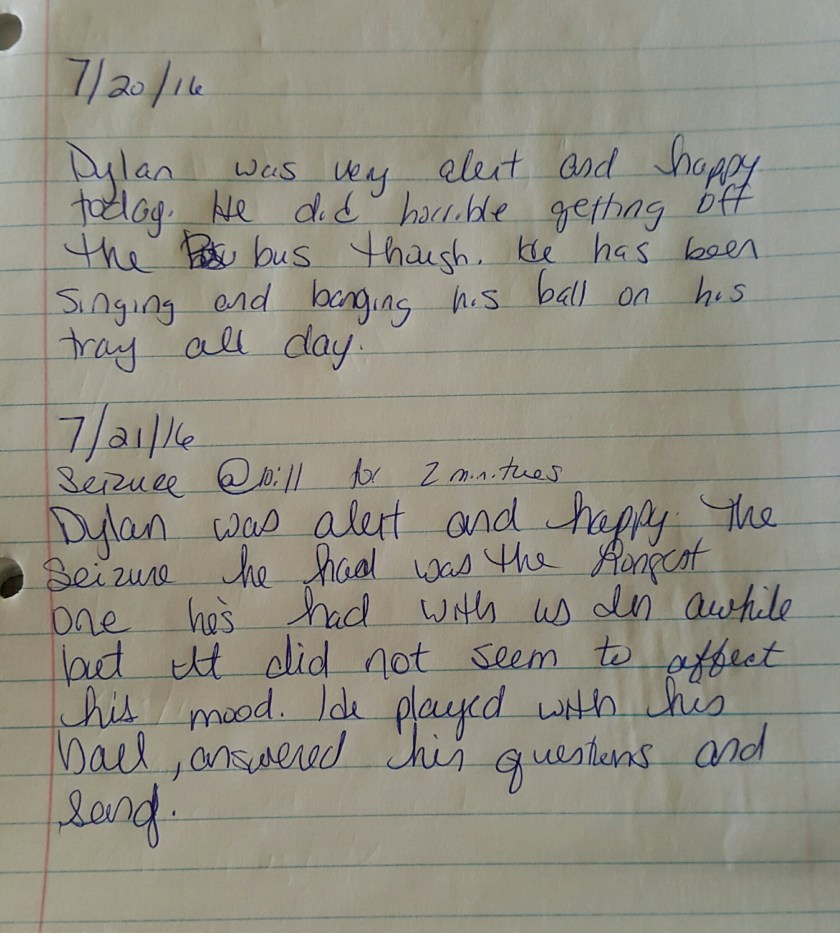 7/20/16
Dylan was very alert and happy
today. He did horrible getting off
the bus though. He has been
singing and banging his ball on his
tray all day.
7/21/16
Seizure @10:11 for 2 minitues
Dylan was alert and happy. The
seizure he had was the longest
one he's had with us in awhile
but it did not seem to affect
his mood. He played with his
ball, answered his questions and
sang.